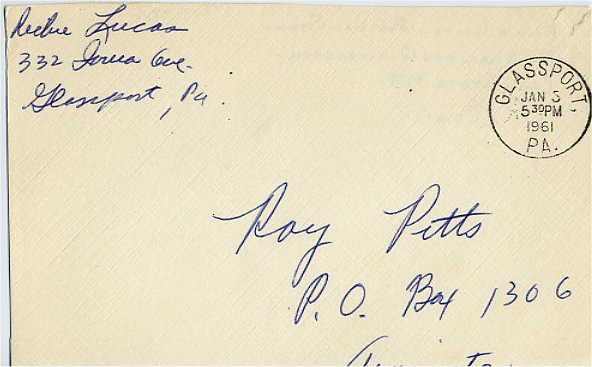 Richie Lucas
332 Iowa Ave.
Glassport, Pa.
GLASSPORT,
JAN 3
5 30 PM
1961
PA.
Roy Pitts
P. O. Box 1306